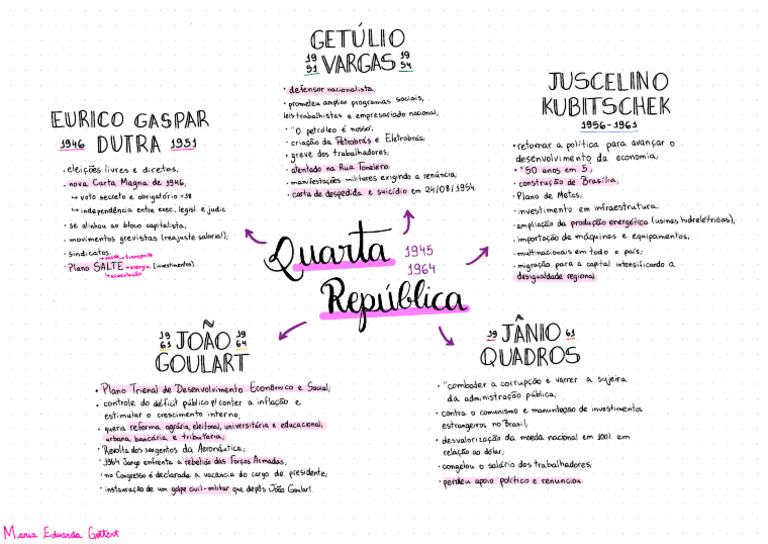 GETÚLIO
1951 VARGAS 1954
• defensor nacionalista,
• prometeu ampliar programas sociais,
leis trabalhistas e empresariado nacional,
• "O petróleo é nosso",
• criação da Petrobrás e Eletrobrás,
• greve dos trabalhadores,
• atentado na Rua Tonelero.
• manifestações militares exigindo a renúncia;
• carta de despedida e suicídio em 24/08/1954.
JUSCELINO
KUBITSCHEK
1956-1961
• retomar a política para avançar o
desenvolvimento da economia;
• "50 anos em 5;
• construção de Brasília,
• Plano de Metas;
• investimento em infraestrutura.
• ampliação da produção energética (usinas hidrelétricas),
• importação de máquinas e equipamentos;
• multinacionais em todo o país;
• migração para a capital intensificando a
desigualdade regional
EURICO GASPAR
1946 DUTRA 1951
• eleições livres e diretas,
• nova Carta Magna de 1946,
↳ voto secreto e obrigatório +18
↳ independência entre exec, legisl e judic
• se alinhou ao bloco capitalista,
• movimentos grevistas (reajuste salarial);
• sindicatos.
saúde transporte
• Plano SALTE energia (investimentos).
alimentação
Quarta 1945
1964
República
1961 JOÃO 1964
GOULART
• Plano Trienal de Desenvolvimento Econômico e Social;
• controle do déficit público p/ conter a inflação e
estimular o crescimento interno,
• queria reforma agrária, eleitoral, universitária e educacional,
urbana, bancária e tributária;
• Revolta dos sargentos da Aeronáutica;
• 1964 Jango enfrenta a rebelião das Forças Armadas,
• no Congresso é declarada a vacância do cargo de presidente;
• instauração de um golpe civil-militar que depôs João Goulart.
19 JÂNIO 61
QUADROS
• "combater a corrupção e varrer a sujeira
da administração pública;
• contra o comunismo e manuntenção de investimentos
estrangeiros no Brasil,
• desvalorização da moeda nacional em 100% em
relação ao dólar;
• congelou o salário dos trabalhadores;
• perdeu apoio político e renunciou.
Maria Eduarda